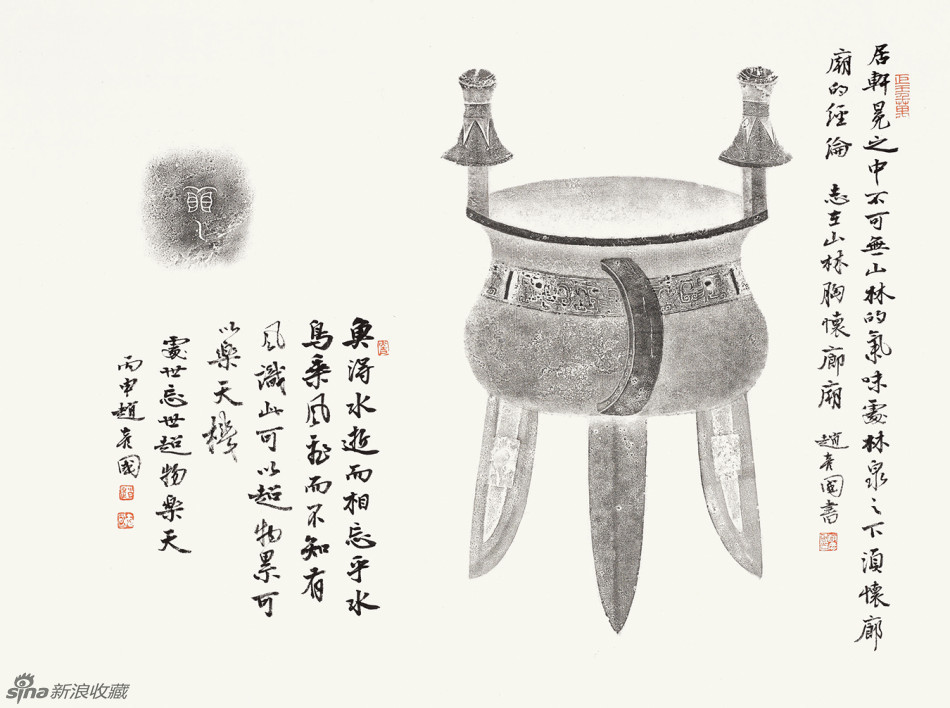 居軒冕之中不可無山林的氣味處林泉之下須懷廊
廟的經綸 志在山林胸懷廊廟 趙彥國書
魚得水逝而相忘乎水
鳥乘風飛而不知有
風識此可以超物累可
以樂天機
處世忘世超物樂天
丙申趙彥國
sina新浪收藏